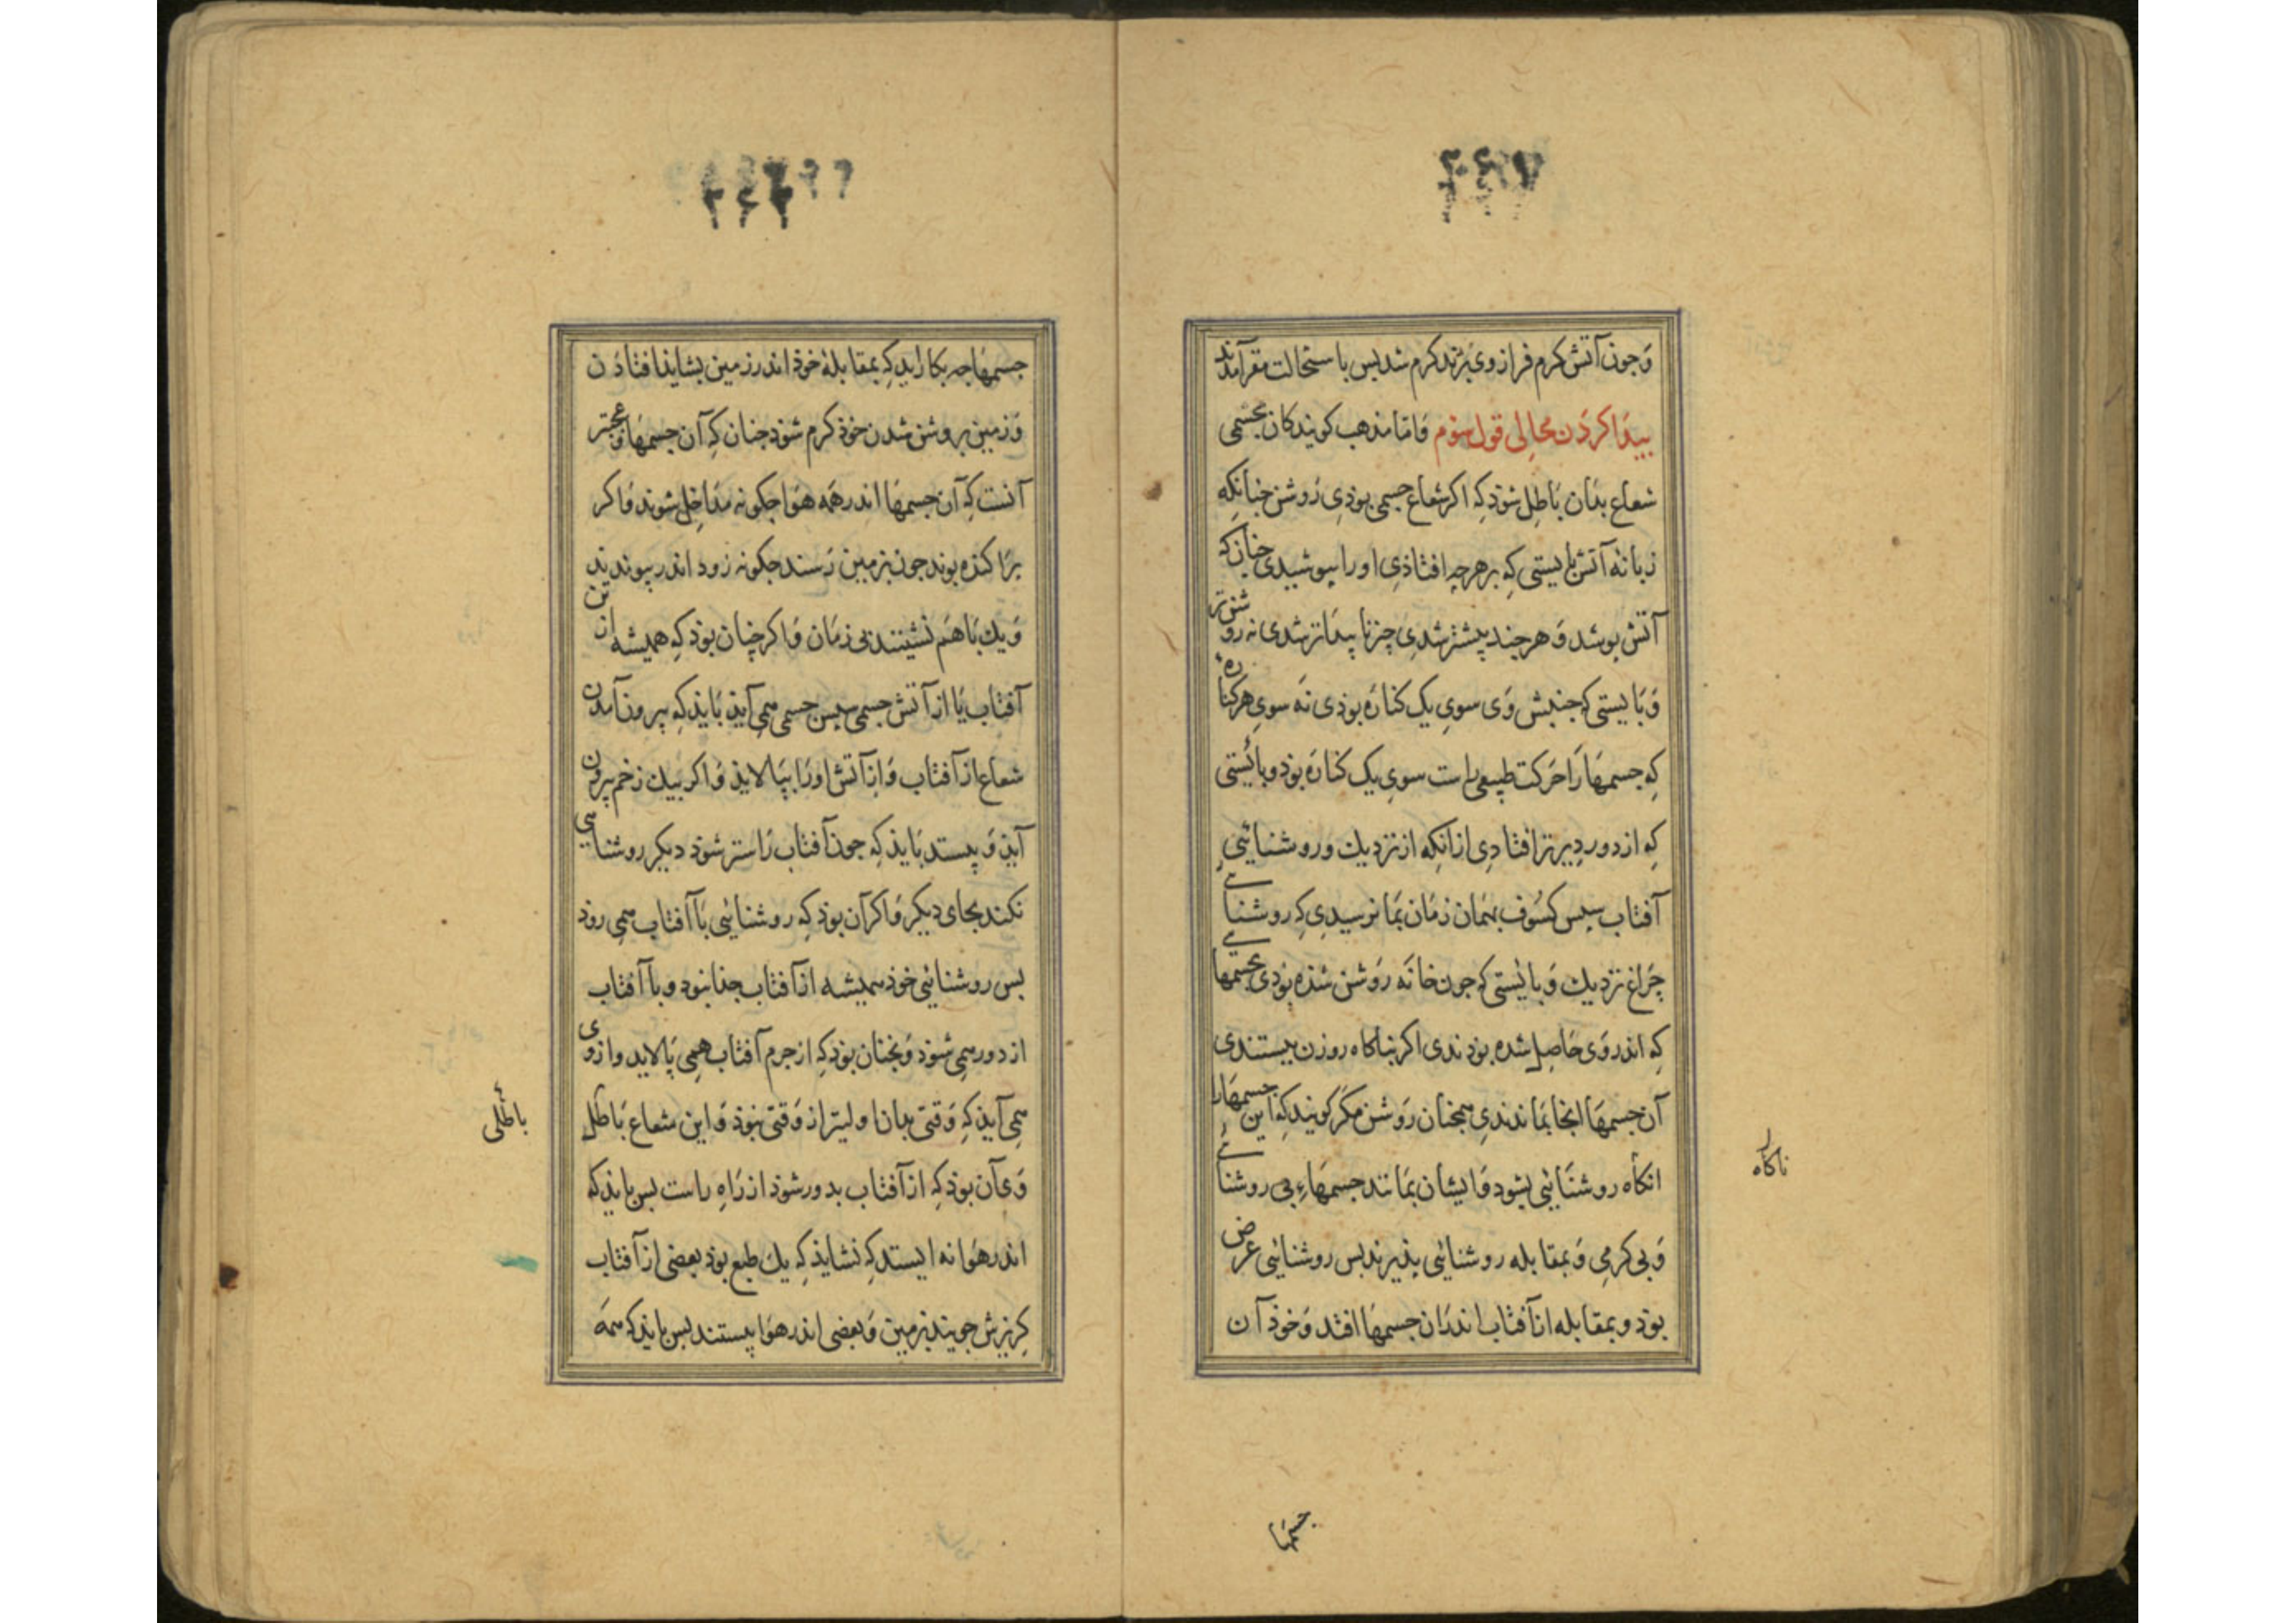 وَجون آتش کرم فراز وی برَند کرم شد بس باستحالت مقر آمدند
بیدَا کردَن محالِی قول سوّم وَامّا مذهب کویندکان بجسمی
شعاع بدَان بَاطِل شوذ کِه اکر شعاع جسمی بوذیِ رَوشن جنانکِه
زبانهٔ آتش بایستی کِه بر هرجِه افتاذیِ اورا بپوشیدی جنان که
آتش بوشد وَ هرجند بیشتر شدیِ چیز نا پیدَاتر شدی نه روشنتر
وَبَایستی که جنبش وَی سویِ یک کنارَه بوذی نَه سویِ هر کناره
کِه جسمهَا رَا حَرَکت طبیعی راست سویِ یک کنارَه بوذ و بایستی
کِه از دور دِیرتر افتادیِ ازانکِه از نزدیك و روشنائی
آفتاب سبس کسُوف بهَمان زمَان بمَا نرسیدیِ کِه روشنائی
چرَاغ نزدیك وَ بایستی که جون خانَه رَوشن شذه بوَدی بجسمها
کِه اندر وَی حَاصِل شده بوذندی اکر بناکاه روزن ببستندی
آن جسمهَا انجا بمَاندندیِ همجنان رَوشن مکَر کَویند کِه این جسمهَارا
انکاه روشنَائی بشود وَایشان بمَانند جسمهَاءِ بی روشنائی
وَبی کرمِی وَبمقابله روشنائی بذیرند بس روشنائی عرض
بوَذ و بمقابله از آفتاب اندرَان جسمهَا افتد وَخوذ آن
ناکاه
جسمهَا
جسمهَا جه بکار ایَد کِه بمقابلهٔ خوذ اندر زمین بشایذ افتاذَن
وَزمین بروشن شدن خوذ کرم شوَد جنان کِه آن جسمهَا وَعجبتر
آنست کِه آن جسمهَا اندر همَه هوَا جکونه مدَاخِل شوند وَاکر
برَاکنذه بوند جون بزمین رَسند جکونه زود اندر بیوندند
وَیك بَا هَم نشینند بی زمَان وَاکر چنان بوَذ کِه همیشه از این
آفتاب یَا از آتش جسمی سبس جسمی همِی آیذ بَایذ کِه بیرون آمدن
شعاع از آفتاب وَاز آتش اورَا ببالایذ وَاکر بیك زخم بیرون
آیذ وَ بیستد بَایذ کِه جون آفتاب زَاستر شوذ دیکر روشنایی
نکند بجای دیکر وَاکر آن بوذ کِه روشنائی بَا آفتاب همِی روذ
بس روشنائی خوذ همیشه از آفتاب جذا نبود و با آفتاب
از دور همِی شوذ وَنجنان بوَد کِه از جرم آفتاب همِی پالایَد و از وی
همِی آیَذ کِه وَقتی بدان اولیتر از وَقتی نبوذ وَاین شعاع بَاطل
وَی آن بوَذ کِه از آفتاب بدور شوَذ از رَاهِ راست بس بایذ که
اندر هوَا نه ایستد کِه نشایذ کِه یك طبع بوَذ بعضی از آفتاب
کریزش جویند بزمین وَبعضی اندر هوَا بیستند بس بایذ کِه همَه
باطلی